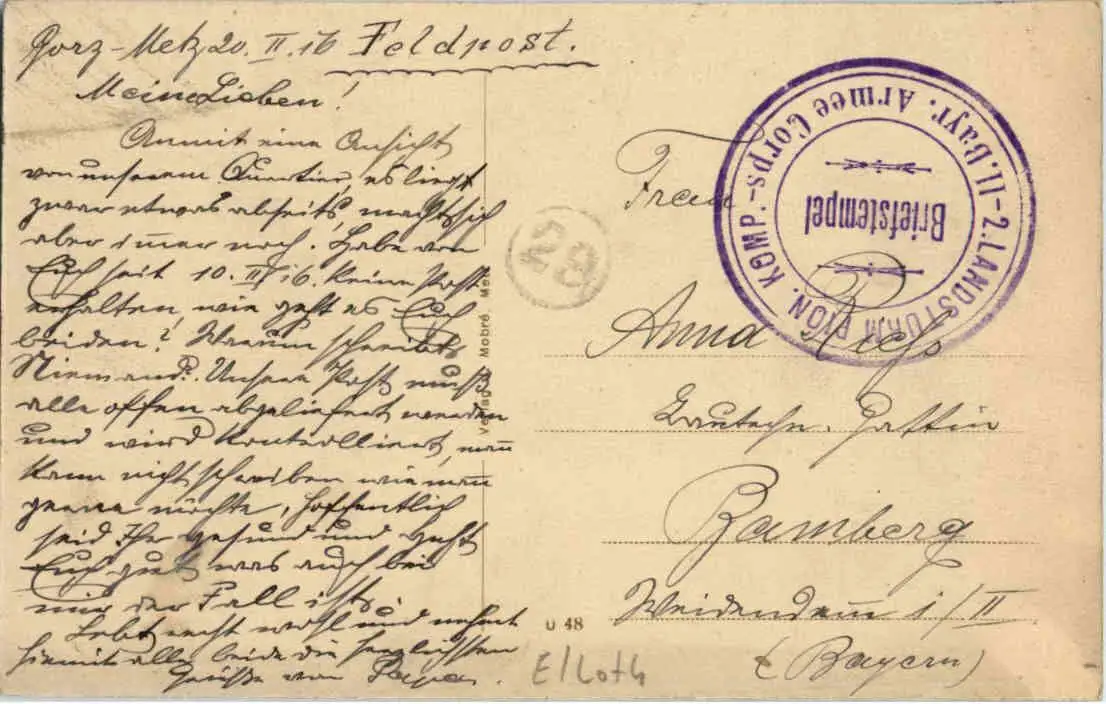 Gorz-Metz 20. II. 16 Feldpost.
Meine Lieben!
Anmit eine Ansicht
von unserem Quartier, es liegt
zwar etwas abseits, macht sich
aber immer noch. Habe von
Euch seit 10. II. 16. keine Post
erhalten, wie geht es Euch
beiden? Warum schreibt
Niemand? Unsere Post muß
alle offen abgeliefert werden
und wird kontrolliert, man
kann nicht schreiben wie man
gerne möchte, hoffentlich
seid Ihr gesund und geht
Euch gut was auch bei
mir der Fall ist.
Lebt recht wohl und nehmt
hiemit alle beide die herzlichsten
Grüße von Papa.
Verlag Mobré, Metz
28
II-2. LANDSTURM PION. KOMP.-
II. Bayr. Armee Corps-
Briefstempel
Frau
Anna Rieß
Gattin
Bamberg
Weidendamm 1/II
(Bayern)
U 48
E/Loth